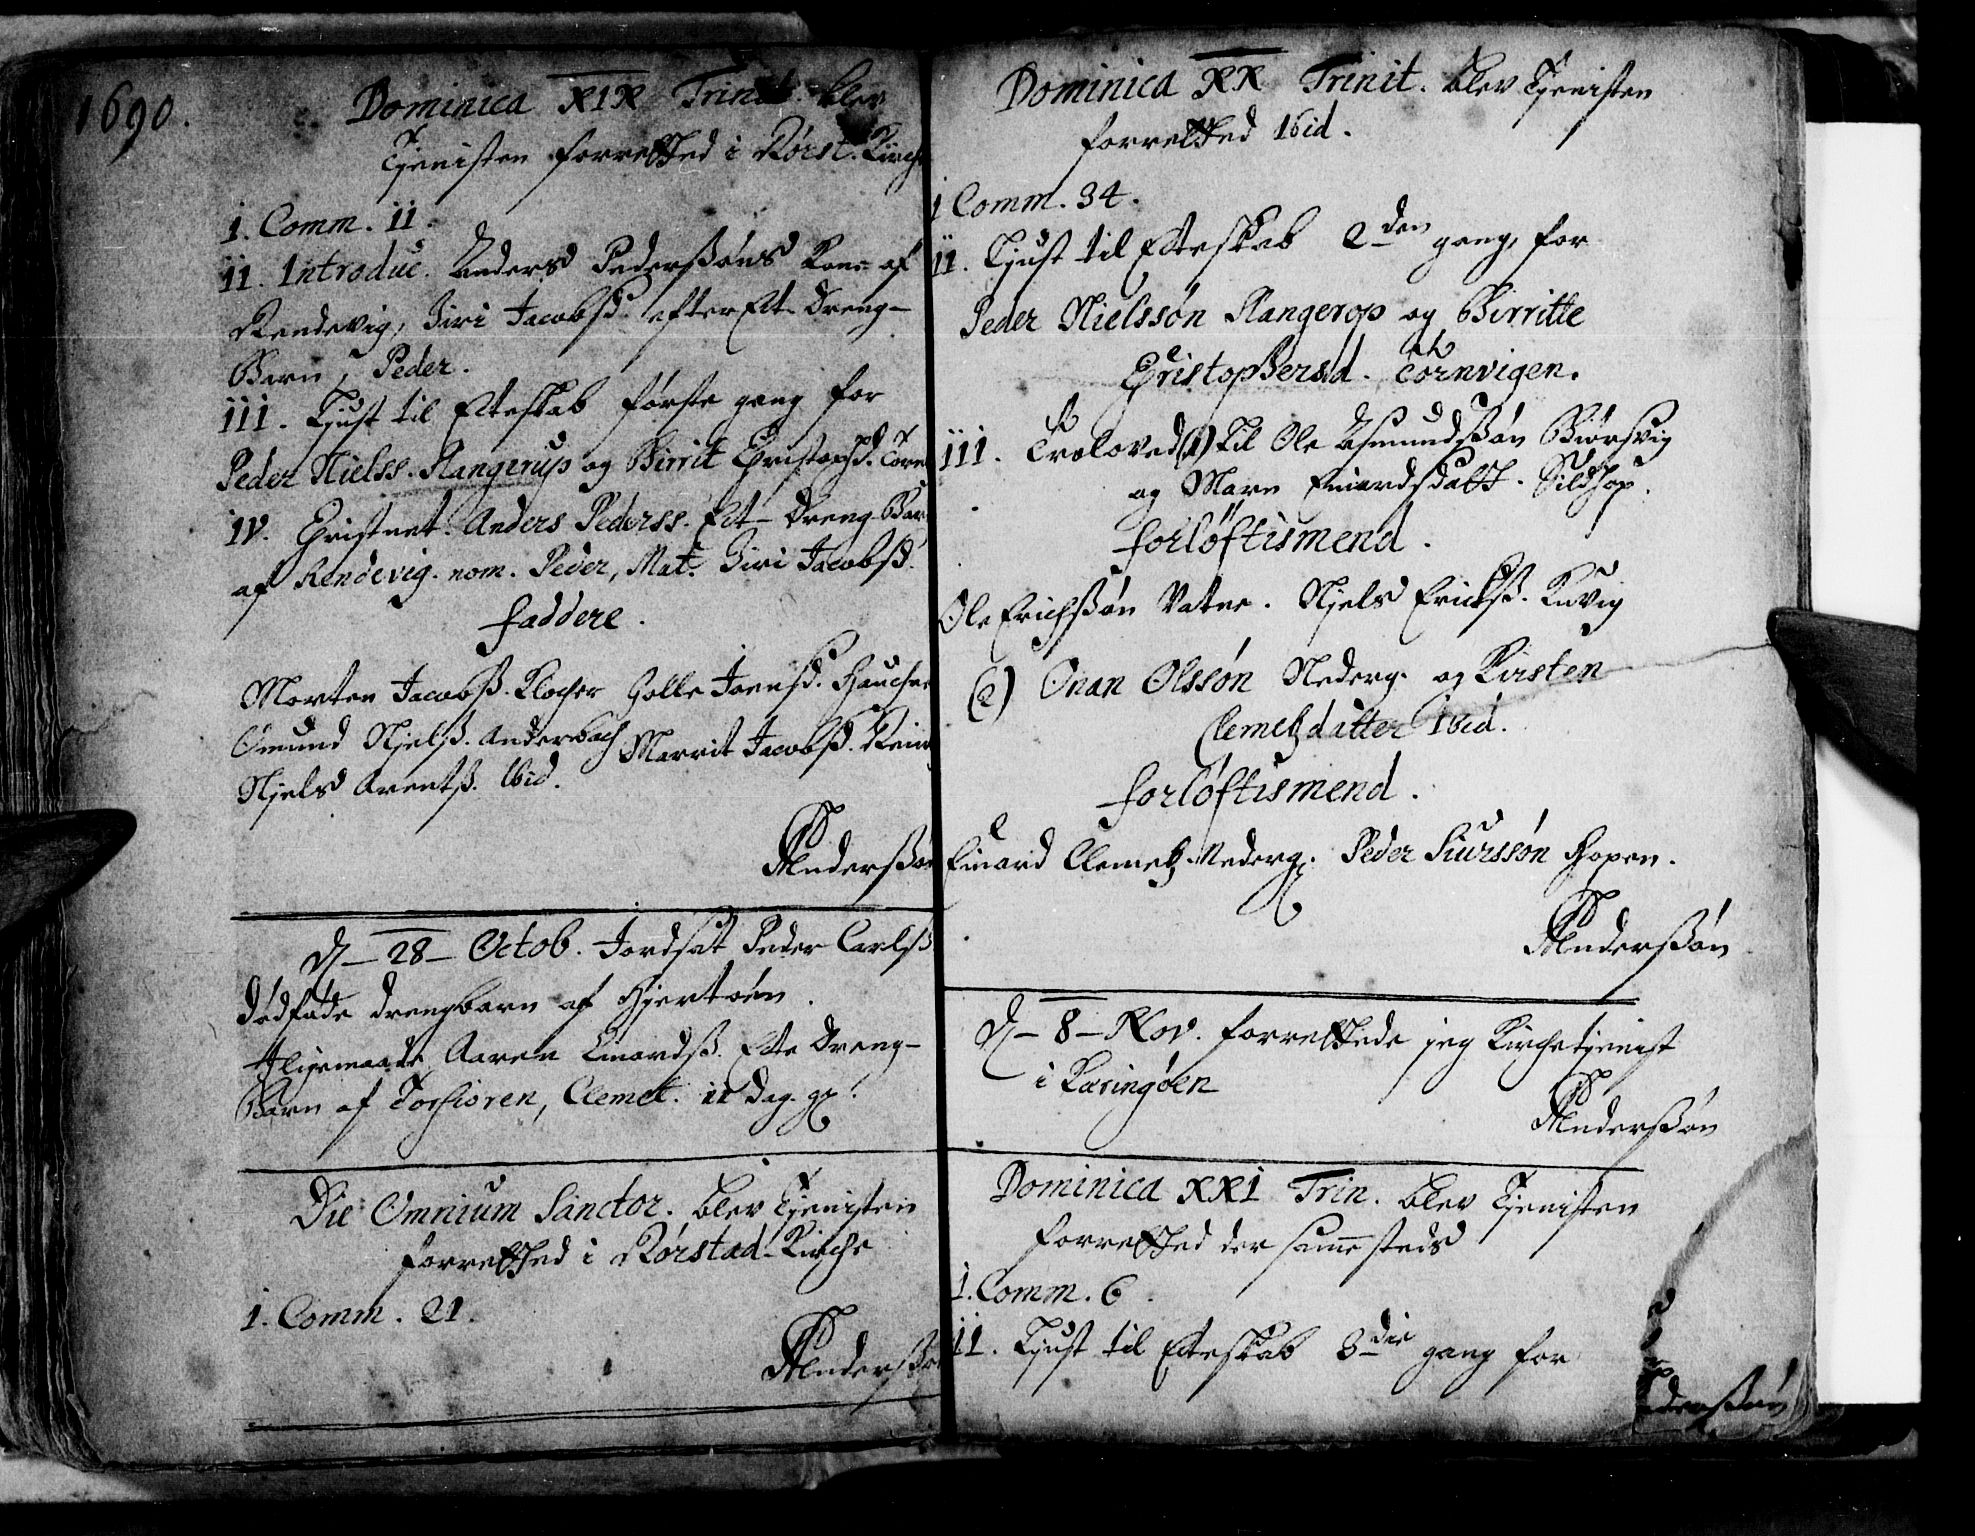 1690.
Dominica XIX Trinit. blev
Tjenisten forretted i Rörst. Kirche
i. Comm. 11.
ii. Introduc. Anders Pederssöns Kone af
Rendevig, Siri Jacobsd. efter Et Dreng-
Barn, Peder.
iii. Liust til Ecteskab förste gang for
Peder Nielss. Slangerup og Birrit Christophd. Törn
iv. Christnet Anders Pederss. Et Dreng Bar
af Rendevig. nom. Peder, Mat. Siri Jacobsd.
faddere.
Morten Jacobss. Klocher Golle Joensd.
Omund Njelss. Anderbach Marrit Jacobsd.
Njels Arentss. ibid.
Anderssön
D. 28 Octob. Jordsat Peder Carlss
dödföde drengbarn af Hjertöen.
Iligemaade Aaren Einardss. Ecte Dreng-
Barn af Torfioren, Clemet. 11 dag. gl.
Die Omnium Sanctor. blev Tjenisten
forretted i Rörstad Kirche
i. Comm. 21.
Anderssön
Dominica XX Trinit. blev Tjenisten
forretted ibid.
i Comm. 34.
ii. Liust til Ecteskab 2den gang, for
Peder Nielssön Slangerop og Birritte
Christophersd. Törnvigen.
iii. Troloved (1) Til Ole Asmundssön Biörsvig
og Marn Einardsdatt. Sildhop.
forlöftismend.
Ole Erichssön Vatne. Njels Erichss.
(2) Onan Olssön Nederg. og Kirsten
Clemetzdatter ibid.
forlöftismend.
Einard Clemetz. Nederg. Peder Siurssön Hopen.
Anderssön
D. 8 Nov. forrettede jeg Kirchetjenist
i Kæringöen
Anderssön
Dominica XXI Trin. blev Tjenisten
forrettet der sammesteds
i. Comm. 6
ii. Liust til Ecteskab 3die gang for